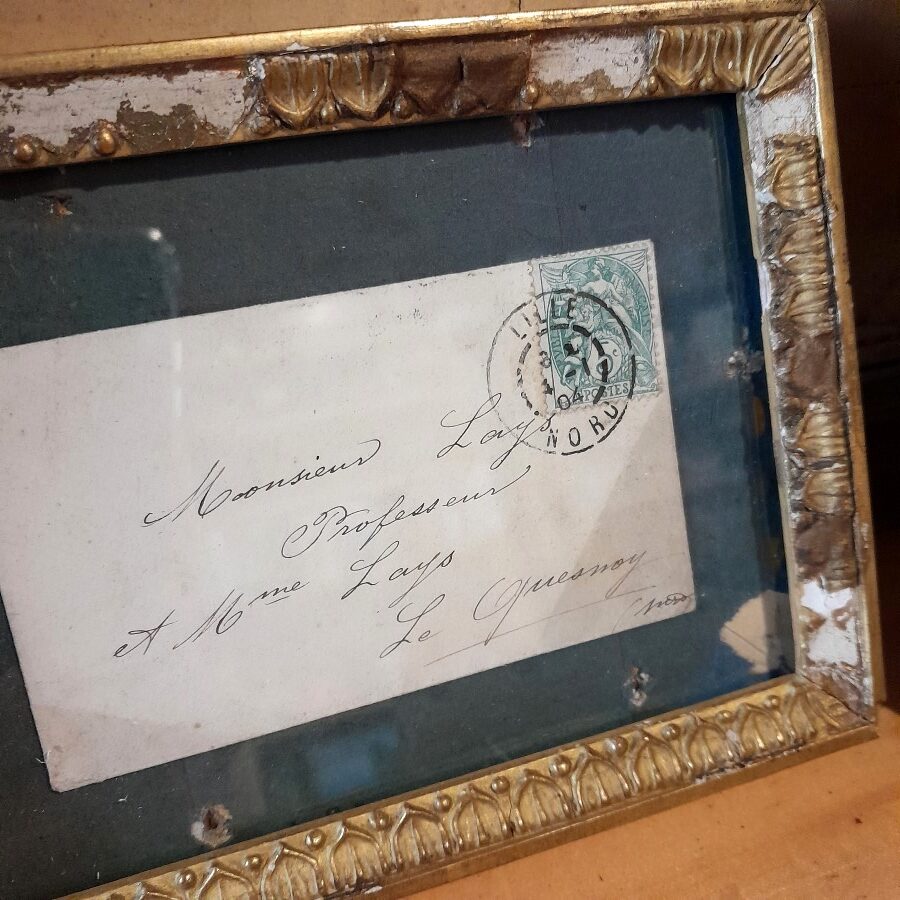 LILLE
04
NORD
POSTES
Monsieur Lays
Professeur
et Mme Lays
Le Quesnoy
(Nord)